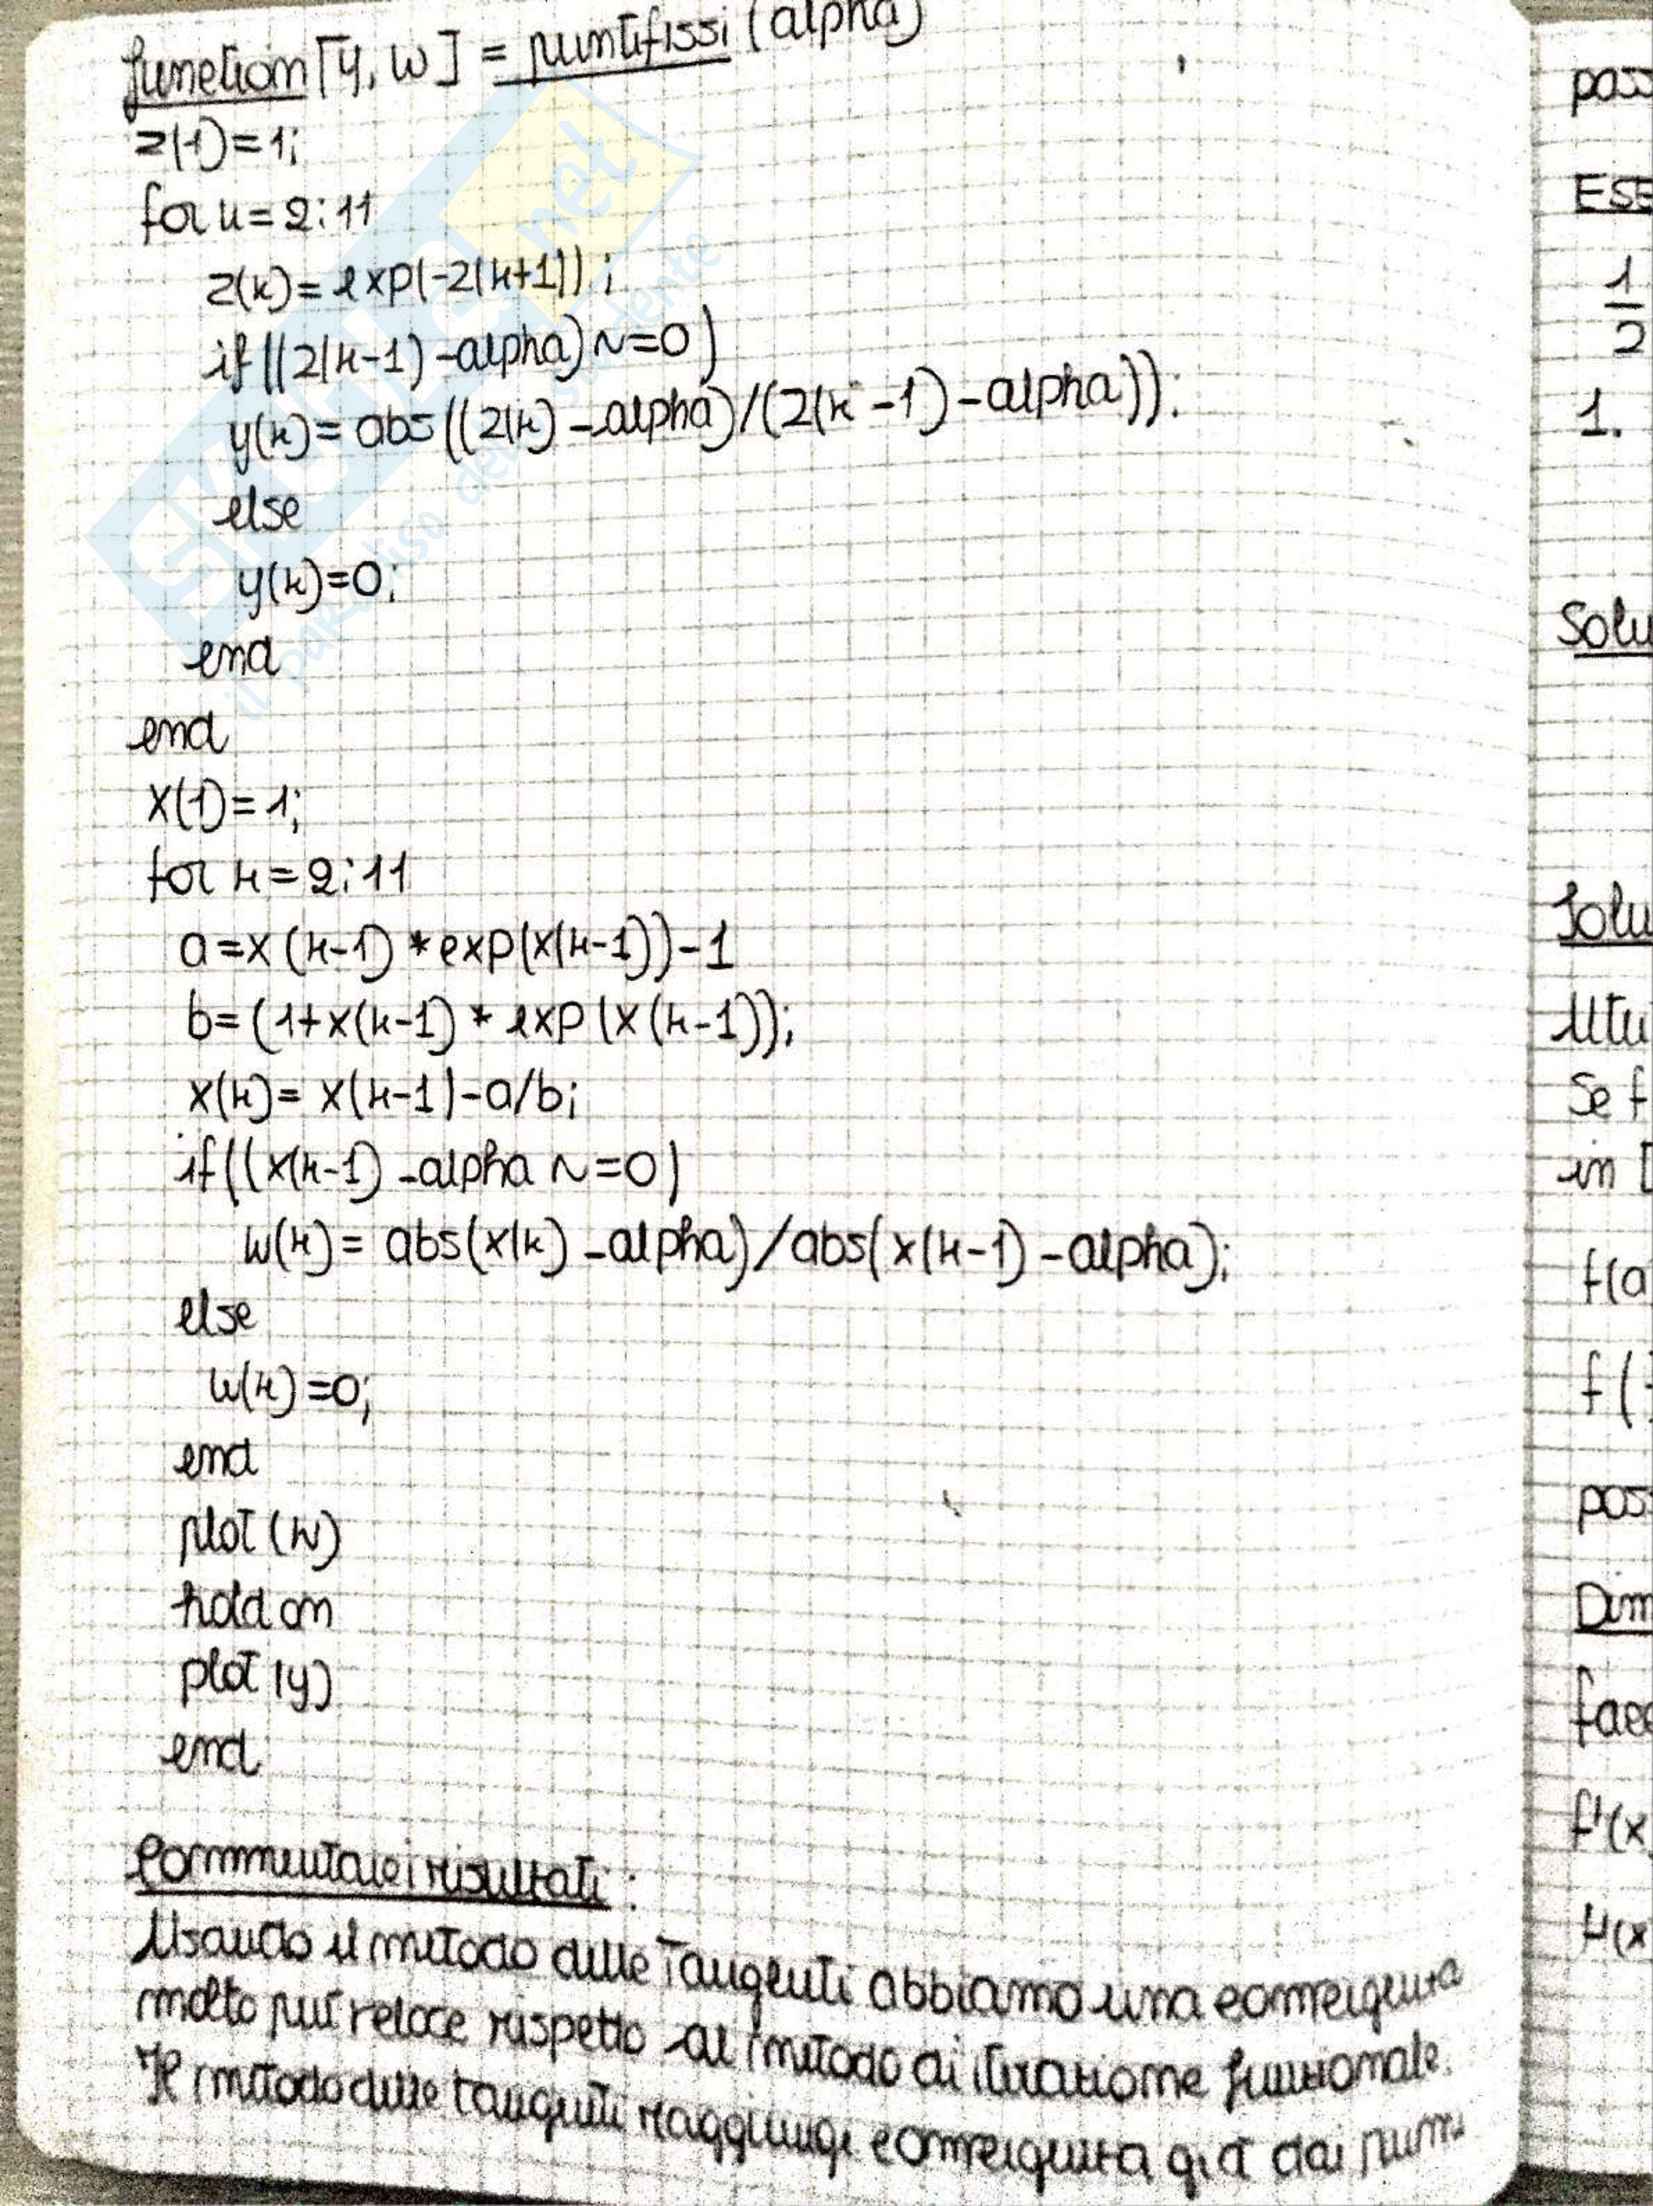 function [y, w] = puntifissi (alpha)
z(1)=1;
for k=2:11
z(k)=exp(-z(k+1));
if((z(k-1)-alpha)~=0)
y(k)=abs((z(k)-alpha)/(z(k-1)-alpha));
else
y(k)=0;
end
end
x(1)=1;
for k=2:11
a=x(k-1)*exp(x(k-1))-1
b=(1+x(k-1)*exp(x(k-1));
x(k)= x(k-1)-a/b;
if((x(k-1)-alpha ~=0)
w(k)= abs(x(k)-alpha)/abs(x(k-1)-alpha);
else
w(k)=0;
end
plot(w)
hold on
plot(y)
end
Commentare i risultati:
Usando il metodo delle Tangenti abbiamo una convergenza
molto più veloce rispetto al metodo di iterazione funzionale.
Il metodo delle tangenti raggiunge convergenza già dai primi
pass
ESE
1
2
1.
Solu
Solu
Se f
in [
f(a
f(
poss
Dim
face
f'(x
H(x
SKUOLA.net
il paradiso dello studente